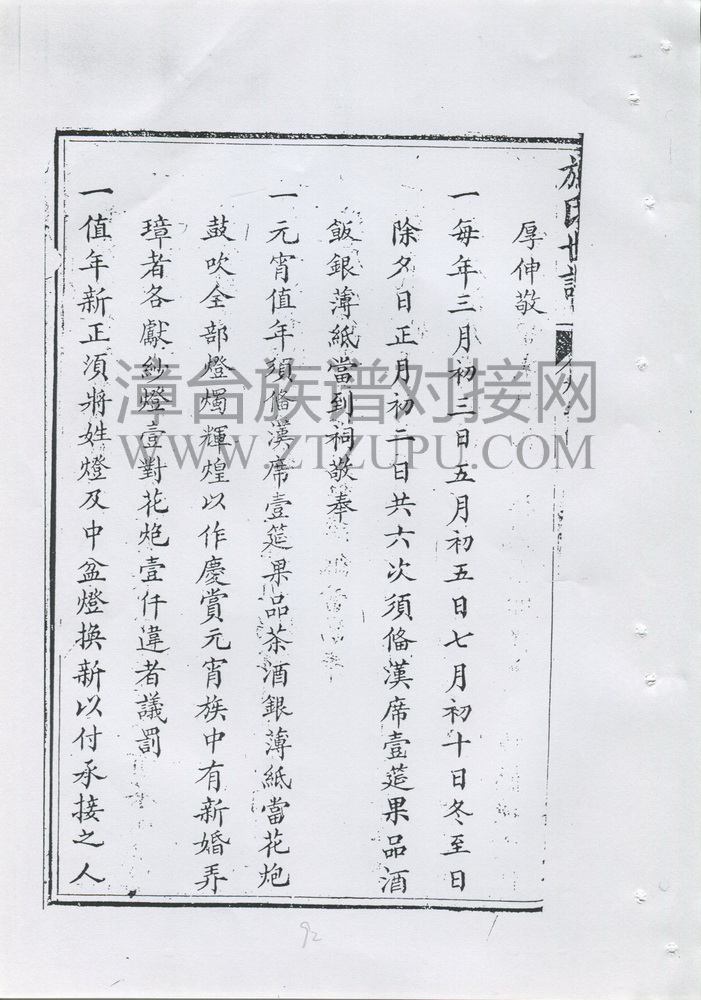 施氏世譜
厚伸敬
一每年三月初三日五月初五日七月初十日冬至日
除夕日正月初二日共六次須俻漢席壹筵果品酒
飯銀薄紙當到祠敬奉
一元宵值年須俻漢席壹筵果品茶酒銀薄紙當花炮
鼓吹全部燈燭輝煌以作慶賞元宵族中有新婚弄
璋者各獻紗燈壹對花炮壹仟違者議罰
一值年新正須將姓燈及中盆燈換新以付承接之人
漳台族谱对接网
WWW.ZTZUPU.COM
92